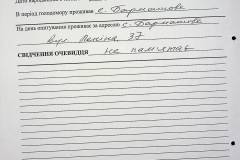 В період голодомору проживав с. Дармашове
На день опитування проживає за адресою с. Дармашове
вул Леніна 37
СВІДЧЕННЯ ОЧЕВИДЦЯ не пам'ятає